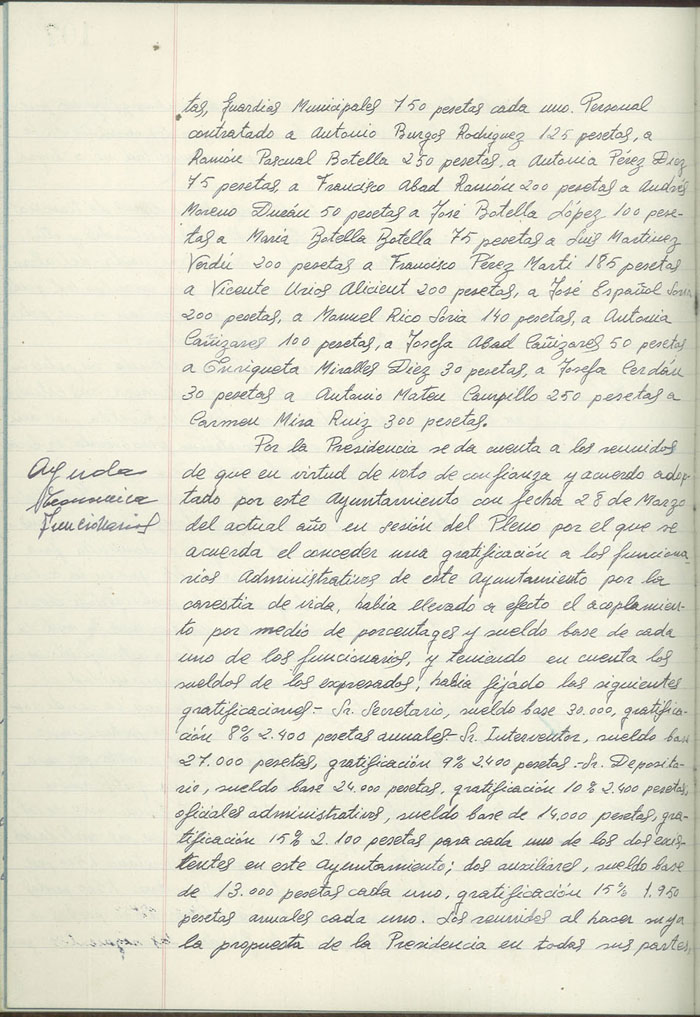 tas, Guardias Municipales 750 pesetas cada uno. Personal
contratado a Antonio Burgos Rodriguez 125 pesetas, a
Ramón Pascual Botella 250 pesetas, a Antonia Pérez Diez
75 pesetas, a Francisco Abad Ramón 200 pesetas a Andrés
Moreno Durán 50 pesetas a José Botella López 100 pese-
tas a Maria Botella Botella 75 pesetas a Luis Martinez
Verdú 200 pesetas a Francisco Pérez Marti 185 pesetas
a Vicente Urios Alicient 200 pesetas, a José Español Soria
200 pesetas, a Manuel Rico Soria 140 pesetas, a Antonia
Cañizares 100 pesetas, a Josefa Abad Cañizares 50 pesetas
a Enriqueta Miralles Diez 30 pesetas, a Josefa Cerdán
30 pesetas a Antonio Mateu Campillo 250 pesetas a
Carmen Mira Ruiz 300 pesetas.
Por la Presidencia se da cuenta a los reunidos
Ayuda
Economica
Funcionarios
de que en virtud de voto de confianza y acuerdo adop-
tado por este Ayuntamiento con fecha 28 de Marzo
del actual año en sesión del Pleno por el que se
acuerda el conceder una gratificación a los funciona-
rios Administrativos de este Ayuntamiento por la
carestia de vida, habia llevado a efecto el acoplamien-
to por medio de porcentages y sueldo base de cada
uno de los funcionarios, y teniendo en cuenta los
sueldos de los expresados, habia fijado las siguientes
gratificaciones- Sr. Secretario, sueldo base 30.000, gratifica-
ción 8% 2.400 pesetas anuales- Sr. Interventor, sueldo base
27.000 pesetas, gratificación 9% 2400 pesetas.- Sr. Deposita-
rio, sueldo base 24.000 pesetas, gratificación 10% 2.400 pesetas,
oficiales administrativos, sueldo base de 14.000 pesetas, gra-
tificación 15% 2.100 pesetas para cada uno de los dos exis-
tentes en este Ayuntamiento; dos auxiliares, sueldo base
de 13.000 pesetas cada uno, gratificación 15% 1.950
pesetas anuales cada uno. Los reunidos al hacer suya
la propuesta de la Presidencia en todas sus partes,